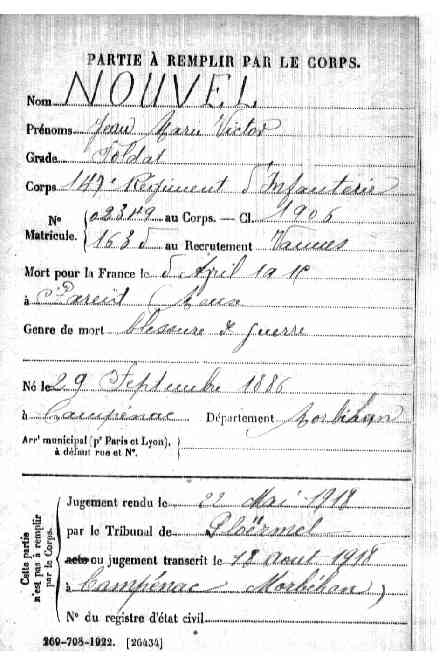 PARTIE À REMPLIR PAR LE CORPS.
Nom NOUVEL
Prénoms Jean Marie Victor
Grade Soldat
Corps 147e Régiment d'Infanterie
N° Matricule. 02349 au Corps. — Cl. 1906
1635 au Recrutement Vannes
Mort pour la France le 5 April
à Pareid Meuse
Genre de mort blessure de guerre
Né le 29 Septembre 1886
à Campénéac Département Morbihan
Arrt municipal (pr Paris et Lyon), à défaut rue et N°.
Cette partie n'est pas à remplir par le Corps.
Jugement rendu le 22 Mai 1918
par le Tribunal de Ploërmel
acte ou jugement transcrit le 18 aout 1918
à Campénac Morbihan
N° du registre d'état civil
269-708-1922. [26434]